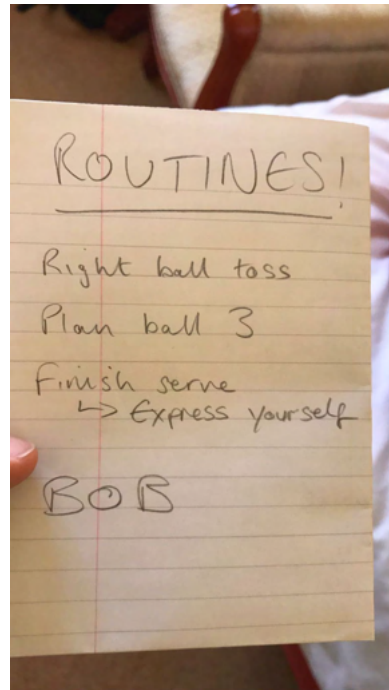 ROUTINES!
Right ball toss
Plan ball 3
Finish serve
↳ Express yourself
BOB